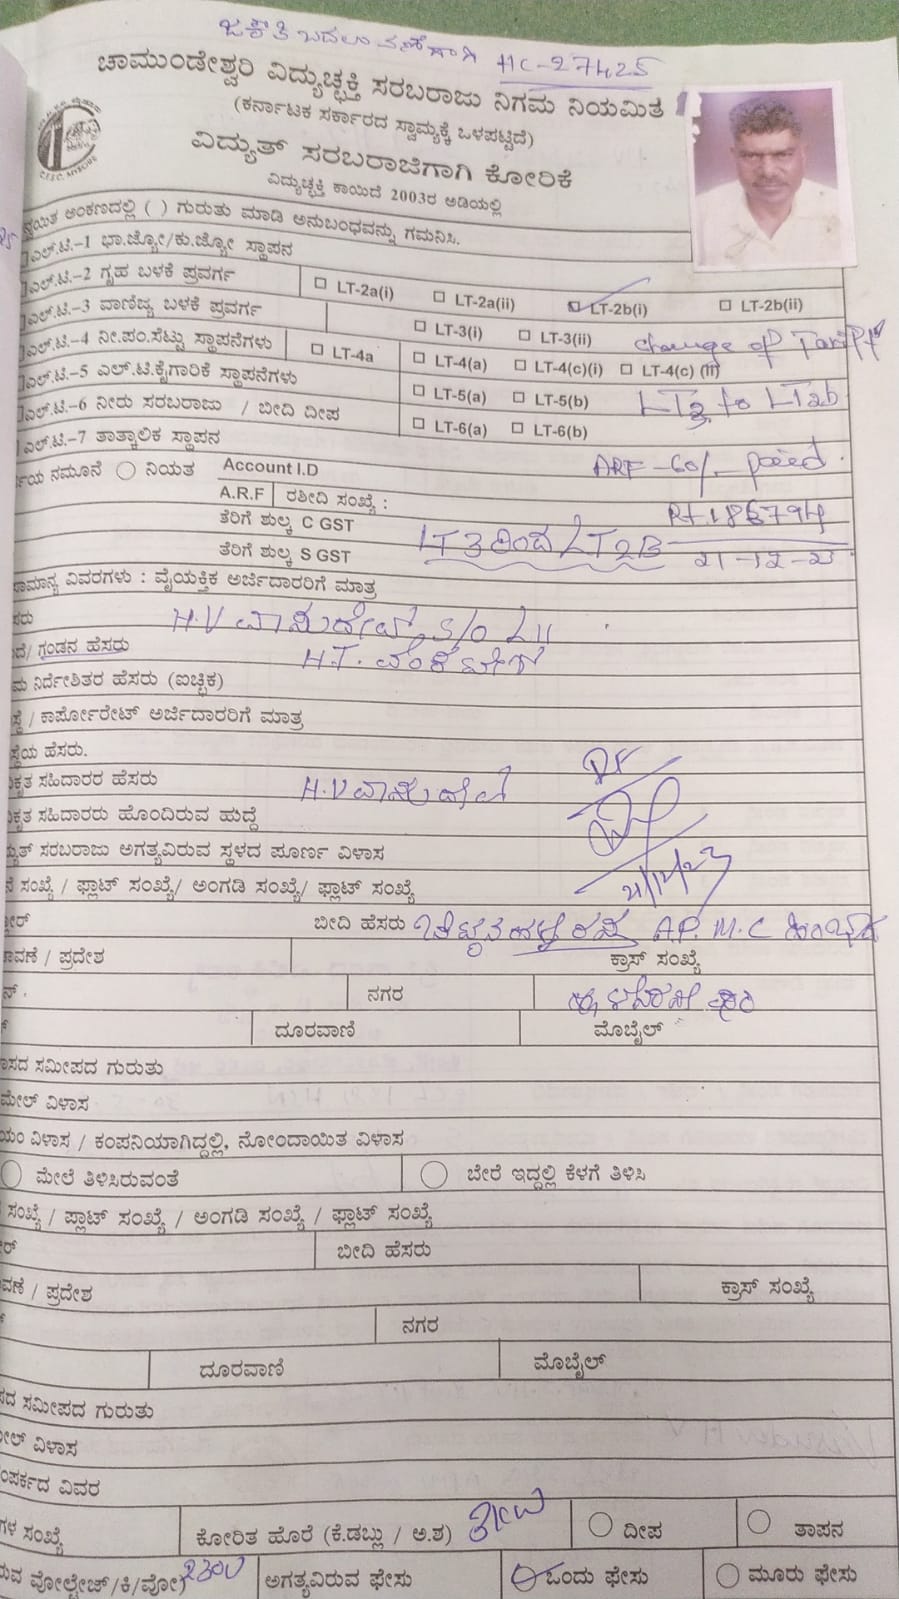 HC-27425
ಚಾಮುಂಡೇಶ್ವರಿ ವಿದ್ಯುಚ್ಛಕ್ತಿ ಸರಬರಾಜು ನಿಗಮ ನಿಯಮಿತ
(ಕರ್ನಾಟಕ ಸರ್ಕಾರದ ಸ್ವಾಮ್ಯಕ್ಕೆ ಒಳಪಟ್ಟಿದೆ)
ವಿದ್ಯುತ್ ಸರಬರಾಜಿಗಾಗಿ ಕೋರಿಕೆ
ವಿದ್ಯುಚ್ಛಕ್ತಿ ಕಾಯಿದೆ 2003ರ ಅಡಿಯಲ್ಲಿ
ಅಂಕಣದಲ್ಲಿ ( ) ಗುರುತು ಮಾಡಿ ಅನುಬಂಧವನ್ನು ಗಮನಿಸಿ.
ಎಲ್.ಟಿ.-1 ಭಾ.ಜ್ಯೋ/ಕು.ಜ್ಯೋ ಸ್ಥಾಪನ
ಎಲ್.ಟಿ.-2 ಗೃಹ ಬಳಕೆ ಪ್ರವರ್ಗ LT-2a(i) LT-2a(ii) LT-2b(i) LT-2b(ii)
ಎಲ್.ಟಿ.-3 ವಾಣಿಜ್ಯ ಬಳಕೆ ಪ್ರವರ್ಗ LT-3(i) LT-3(ii) change of Tariff
ಎಲ್.ಟಿ.-4 ನೀ.ಪಂ.ಸೆಟ್ಟು ಸ್ಥಾಪನೆಗಳು LT-4a LT-4(a) LT-4(c)(i) LT-4(c) (II)
ಎಲ್.ಟಿ.-5 ಎಲ್.ಟಿ.ಕೈಗಾರಿಕೆ ಸ್ಥಾಪನೆಗಳು LT-5(a) LT-5(b) LT3 to LT2b
ಎಲ್.ಟಿ.-6 ನೀರು ಸರಬರಾಜು / ಬೀದಿ ದೀಪ LT-6(a) LT-6(b)
ಎಲ್.ಟಿ.-7 ತಾತ್ಕಾಲಿಕ ಸ್ಥಾಪನ
ನಮೂನೆ ನಿಯತ Account I.D ARF-60/- paied.
A.R.F ರಶೀದಿ ಸಂಖ್ಯೆ :
ತೆರಿಗೆ ಶುಲ್ಕ C GST
ತೆರಿಗೆ ಶುಲ್ಕ S GST LT 3 ರಿಂದ LT 2B 21-12-23
ಸಾಮಾನ್ಯ ವಿವರಗಳು : ವೈಯಕ್ತಿಕ ಅರ್ಜಿದಾರರಿಗೆ ಮಾತ್ರ
H.V ವಾಮದೇವ್ S/O
ಗಂಡನ ಹೆಸರು H.T. ವೆಂಕಟೇಶ್
ನಿರ್ದೇಶಿತರ ಹೆಸರು (ಐಚ್ಛಿಕ)
/ ಕಾರ್ಪೋರೇಟ್ ಅರ್ಜಿದಾರರಿಗೆ ಮಾತ್ರ
ಹೆಸರು.
ಸಹಿದಾರರ ಹೆಸರು H.V ವಾಮದೇವ
ಸಹಿದಾರರು ಹೊಂದಿರುವ ಹುದ್ದೆ
ಸರಬರಾಜು ಅಗತ್ಯವಿರುವ ಸ್ಥಳದ ಪೂರ್ಣ ವಿಳಾಸ
ಸಂಖ್ಯೆ / ಫ್ಲಾಟ್ ಸಂಖ್ಯೆ/ ಅಂಗಡಿ ಸಂಖ್ಯೆ/ ಫ್ಲಾಟ್ ಸಂಖ್ಯೆ 21/12/23
ಬೀದಿ ಹೆಸರು A.P.M.C ಹಿಂಭಾಗ
/ ಪ್ರದೇಶ ಕ್ರಾಸ್ ಸಂಖ್ಯೆ
ನಗರ
ದೂರವಾಣಿ ಮೊಬೈಲ್
ಸಮೀಪದ ಗುರುತು
ವಿಳಾಸ
ವಿಳಾಸ / ಕಂಪನಿಯಾಗಿದ್ದಲ್ಲಿ, ನೋಂದಾಯಿತ ವಿಳಾಸ
ಮೇಲೆ ತಿಳಿಸಿರುವಂತೆ ಬೇರೆ ಇದ್ದಲ್ಲಿ ಕೆಳಗೆ ತಿಳಿಸಿ
ಸಂಖ್ಯೆ / ಪ್ಲಾಟ್ ಸಂಖ್ಯೆ / ಅಂಗಡಿ ಸಂಖ್ಯೆ / ಫ್ಲಾಟ್ ಸಂಖ್ಯೆ
ಬೀದಿ ಹೆಸರು
/ ಪ್ರದೇಶ ಕ್ರಾಸ್ ಸಂಖ್ಯೆ
ನಗರ
ದೂರವಾಣಿ ಮೊಬೈಲ್
ಸಮೀಪದ ಗುರುತು
ವಿಳಾಸ
ವಿವರ
ಸಂಖ್ಯೆ ಕೋರಿತ ಹೊರೆ (ಕೆ.ಡಬ್ಲು / ಅ.ಶ) 3KW ದೀಪ ತಾಪನ
ವೋಲ್ಟೇಜ್/ಕಿ/ವೋ) 230V ಅಗತ್ಯವಿರುವ ಫೇಸು ಒಂದು ಫೇಸು ಮೂರು ಫೇಸು